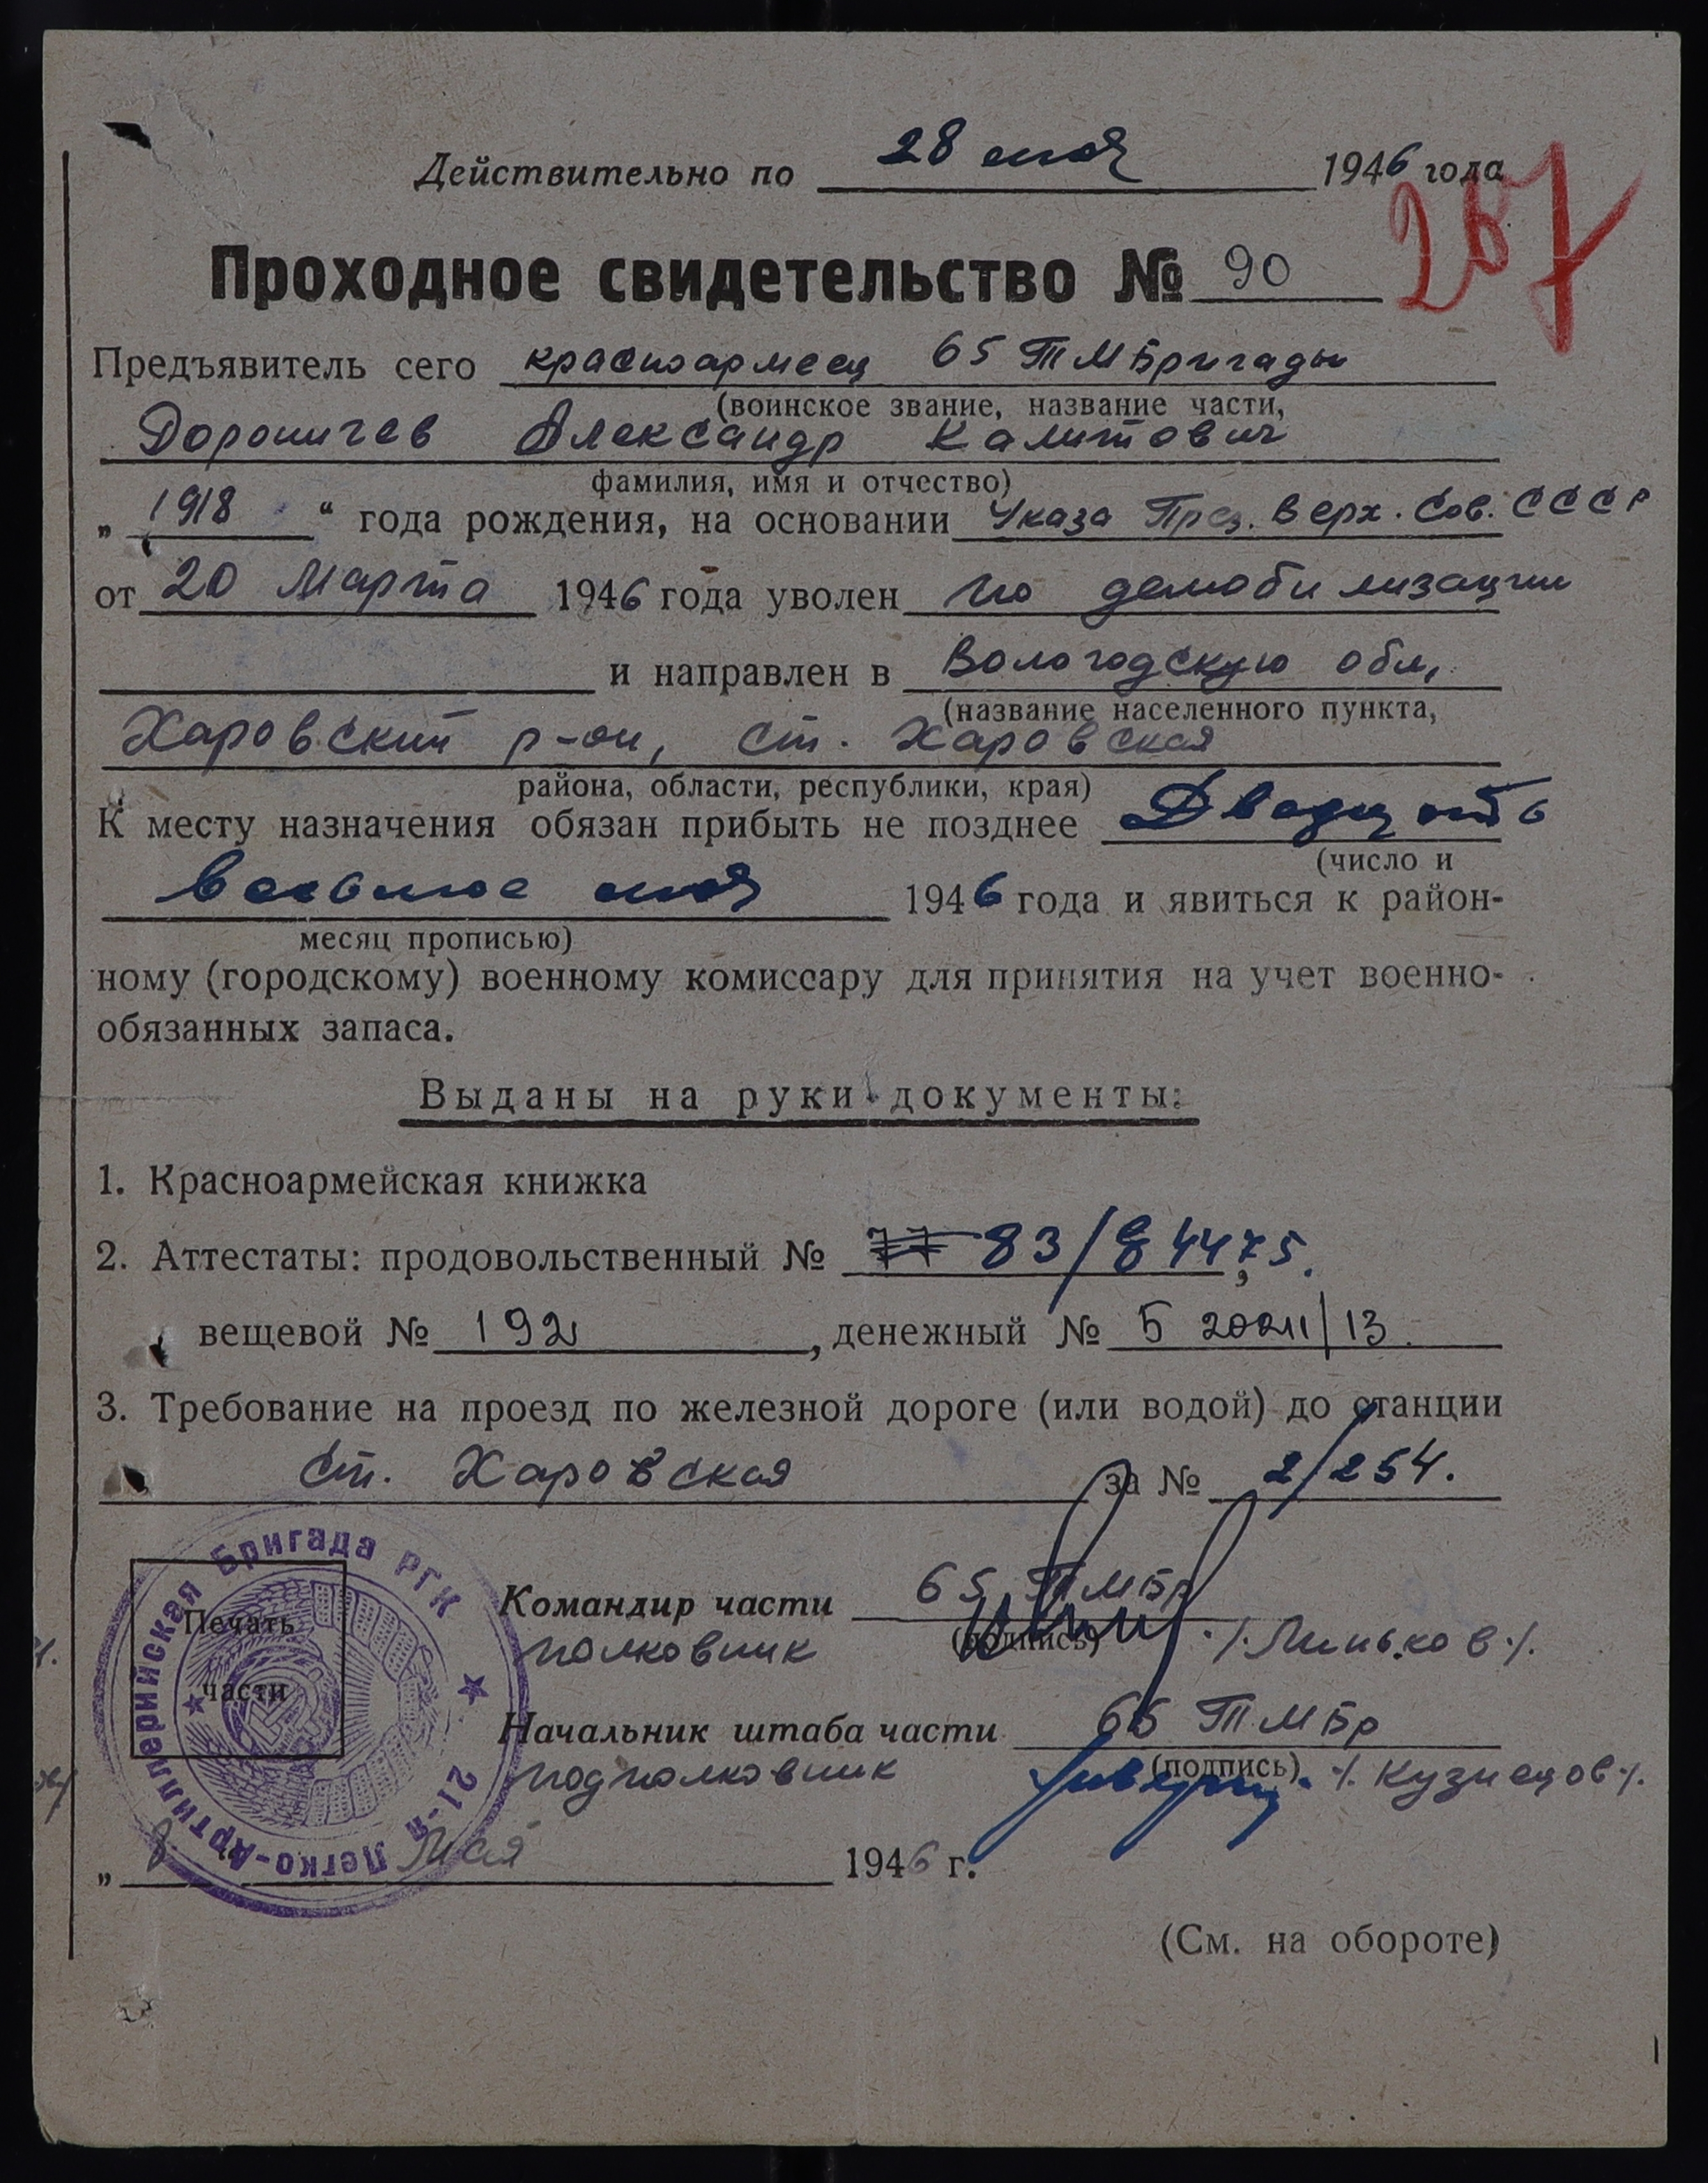 Действительно по 28 мая 1946 года
287
Проходное свидетельство № 90
Предъявитель сего красноармеец 65 ТМБригады
(воинское звание, название части,
Дороничев Александр Калитович
фамилия, имя и отчество)
„ 1918 “ года рождения, на основании Указа През. Верх. Сов. СССР
от 20 Марта 1946 года уволен по демобилизации
и направлен в Вологодскую обл,
(название населенного пункта,
Харовский р-он, ст. Харовская
района, области, республики, края)
К месту назначения обязан прибыть не позднее Двадцать
(число и
восьмое мая 1946 года и явиться к район-
месяц прописью)
ному (городскому) военному комиссару для принятия на учет военно-
обязанных запаса.
Выданы на руки документы:
1. Красноармейская книжка
2. Аттестаты: продовольственный № 77 83/ 4475.
вещевой № 192, денежный № Б 20211/13.
3. Требование на проезд по железной дороге (или водой) до станции
ст. Харовская за № 2/254.
21-я Легко-Артиллерийская Бригада РГК
Печать
части
Командир части 65 ТМБр
полковник (подпись) /. Линьков ./.
Начальник штаба части 65 ТМБр
подполковник (подпись) /. Кузнецов ./.
„ 8 Мая 1946 г.
(См. на обороте)